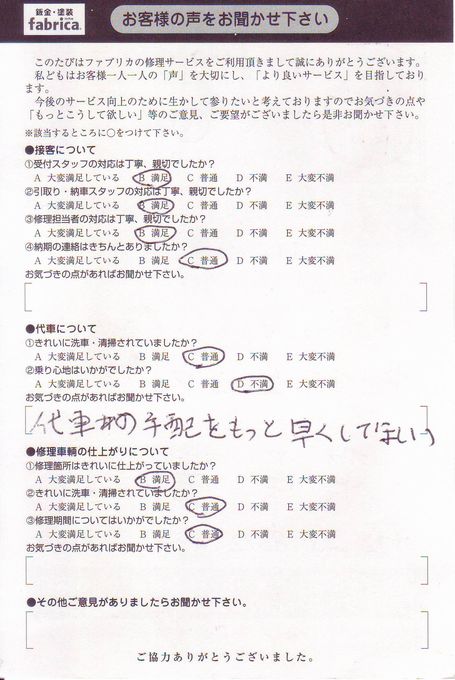 鈑金・塗装
fabrica.
お客様の声をお聞かせ下さい
このたびはファブリカの修理サービスをご利用頂きまして誠にありがとうございます。
私どもはお客様一人一人の「声」を大切にし、「より良いサービス」を目指しており
ます。
今後のサービス向上のために生かして参りたいと考えておりますのでお気づきの点や
「もっとこうして欲しい」等のご意見、ご要望がございましたら是非お聞かせ下さい。
※該当するところに○をつけて下さい。
●接客について
①受付スタッフの対応は丁寧、親切でしたか?
A 大変満足している B 満足 C 普通 D 不満 E 大変不満
②引取り・納車スタッフの対応は丁寧、親切でしたか?
A 大変満足している B 満足 C 普通 D 不満 E 大変不満
③修理担当者の対応は丁寧、親切でしたか?
A 大変満足している B 満足 C 普通 D 不満 E 大変不満
④納期の連絡はきちんとありましたか?
A 大変満足している B 満足 C 普通 D 不満 E 大変不満
お気づきの点があればお聞かせ下さい。
●代車について
①きれいに洗車・清掃されていましたか?
A 大変満足している B 満足 C 普通 D 不満 E 大変不満
②乗り心地はいかがでしたか?
A 大変満足している B 満足 C 普通 D 不満 E 大変不満
お気づきの点があればお聞かせ下さい。
代車の手配をもっと早くしてほしい
●修理車輌の仕上がりについて
①修理箇所はきれいに仕上がっていましたか?
A 大変満足している B 満足 C 普通 D 不満 E 大変不満
②きれいに洗車・清掃されていましたか?
A 大変満足している B 満足 C 普通 D 不満 E 大変不満
③修理期間についてはいかがでしたか?
A 大変満足している B 満足 C 普通 D 不満 E 大変不満
お気づきの点があればお聞かせ下さい。
●その他ご意見がありましたらお聞かせ下さい。
ご協力ありがとうございました。